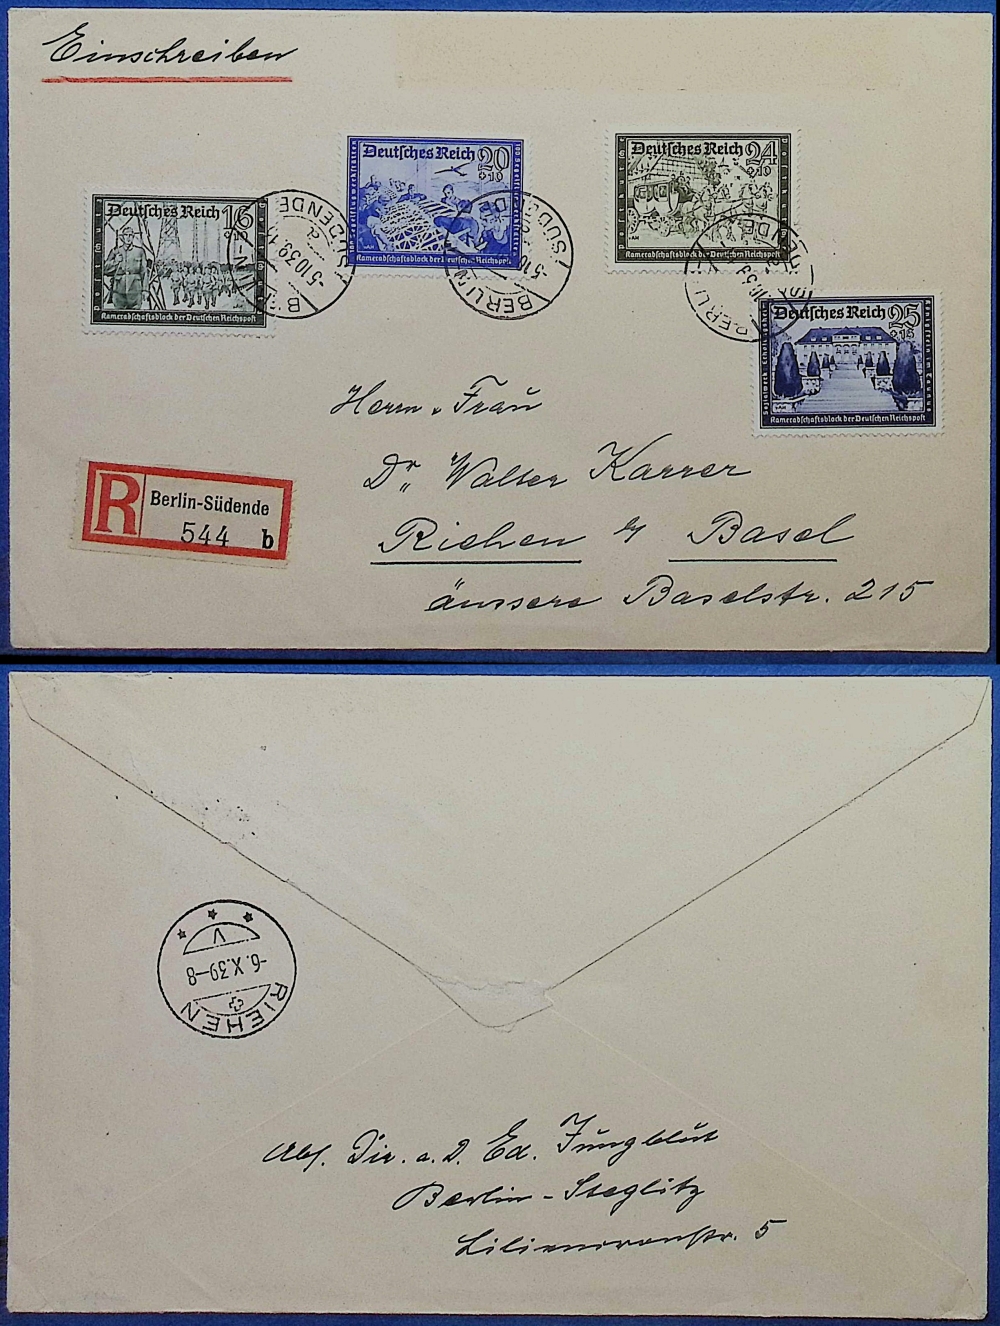 Einschreiben
Deutsches Reich 16
+10
Kameradschaftsblock der Deutschen Reichspost
Deutsches Reich 20
+10
Kameradschaftsblock der Deutschen Reichspost
Deutsches Reich 24
+10
Kameradschaftsblock der Deutschen Reichspost
Deutsches Reich 25
+15
Kameradschaftsblock der Deutschen Reichspost
BERLIN-SÜDENDE
-5.10.39
BERLIN
SÜDENDE
Herrn u. Frau
Dr. Walter Karrer
Riehen b/ Basel
äussere Baselstr. 215
R Berlin-Südende
544 b
RIEHEN
-6.X.39-8
V
Abs. Dir. a. D. Ed. Jungblut
Berlin - Steglitz
Liliencronstr. 5